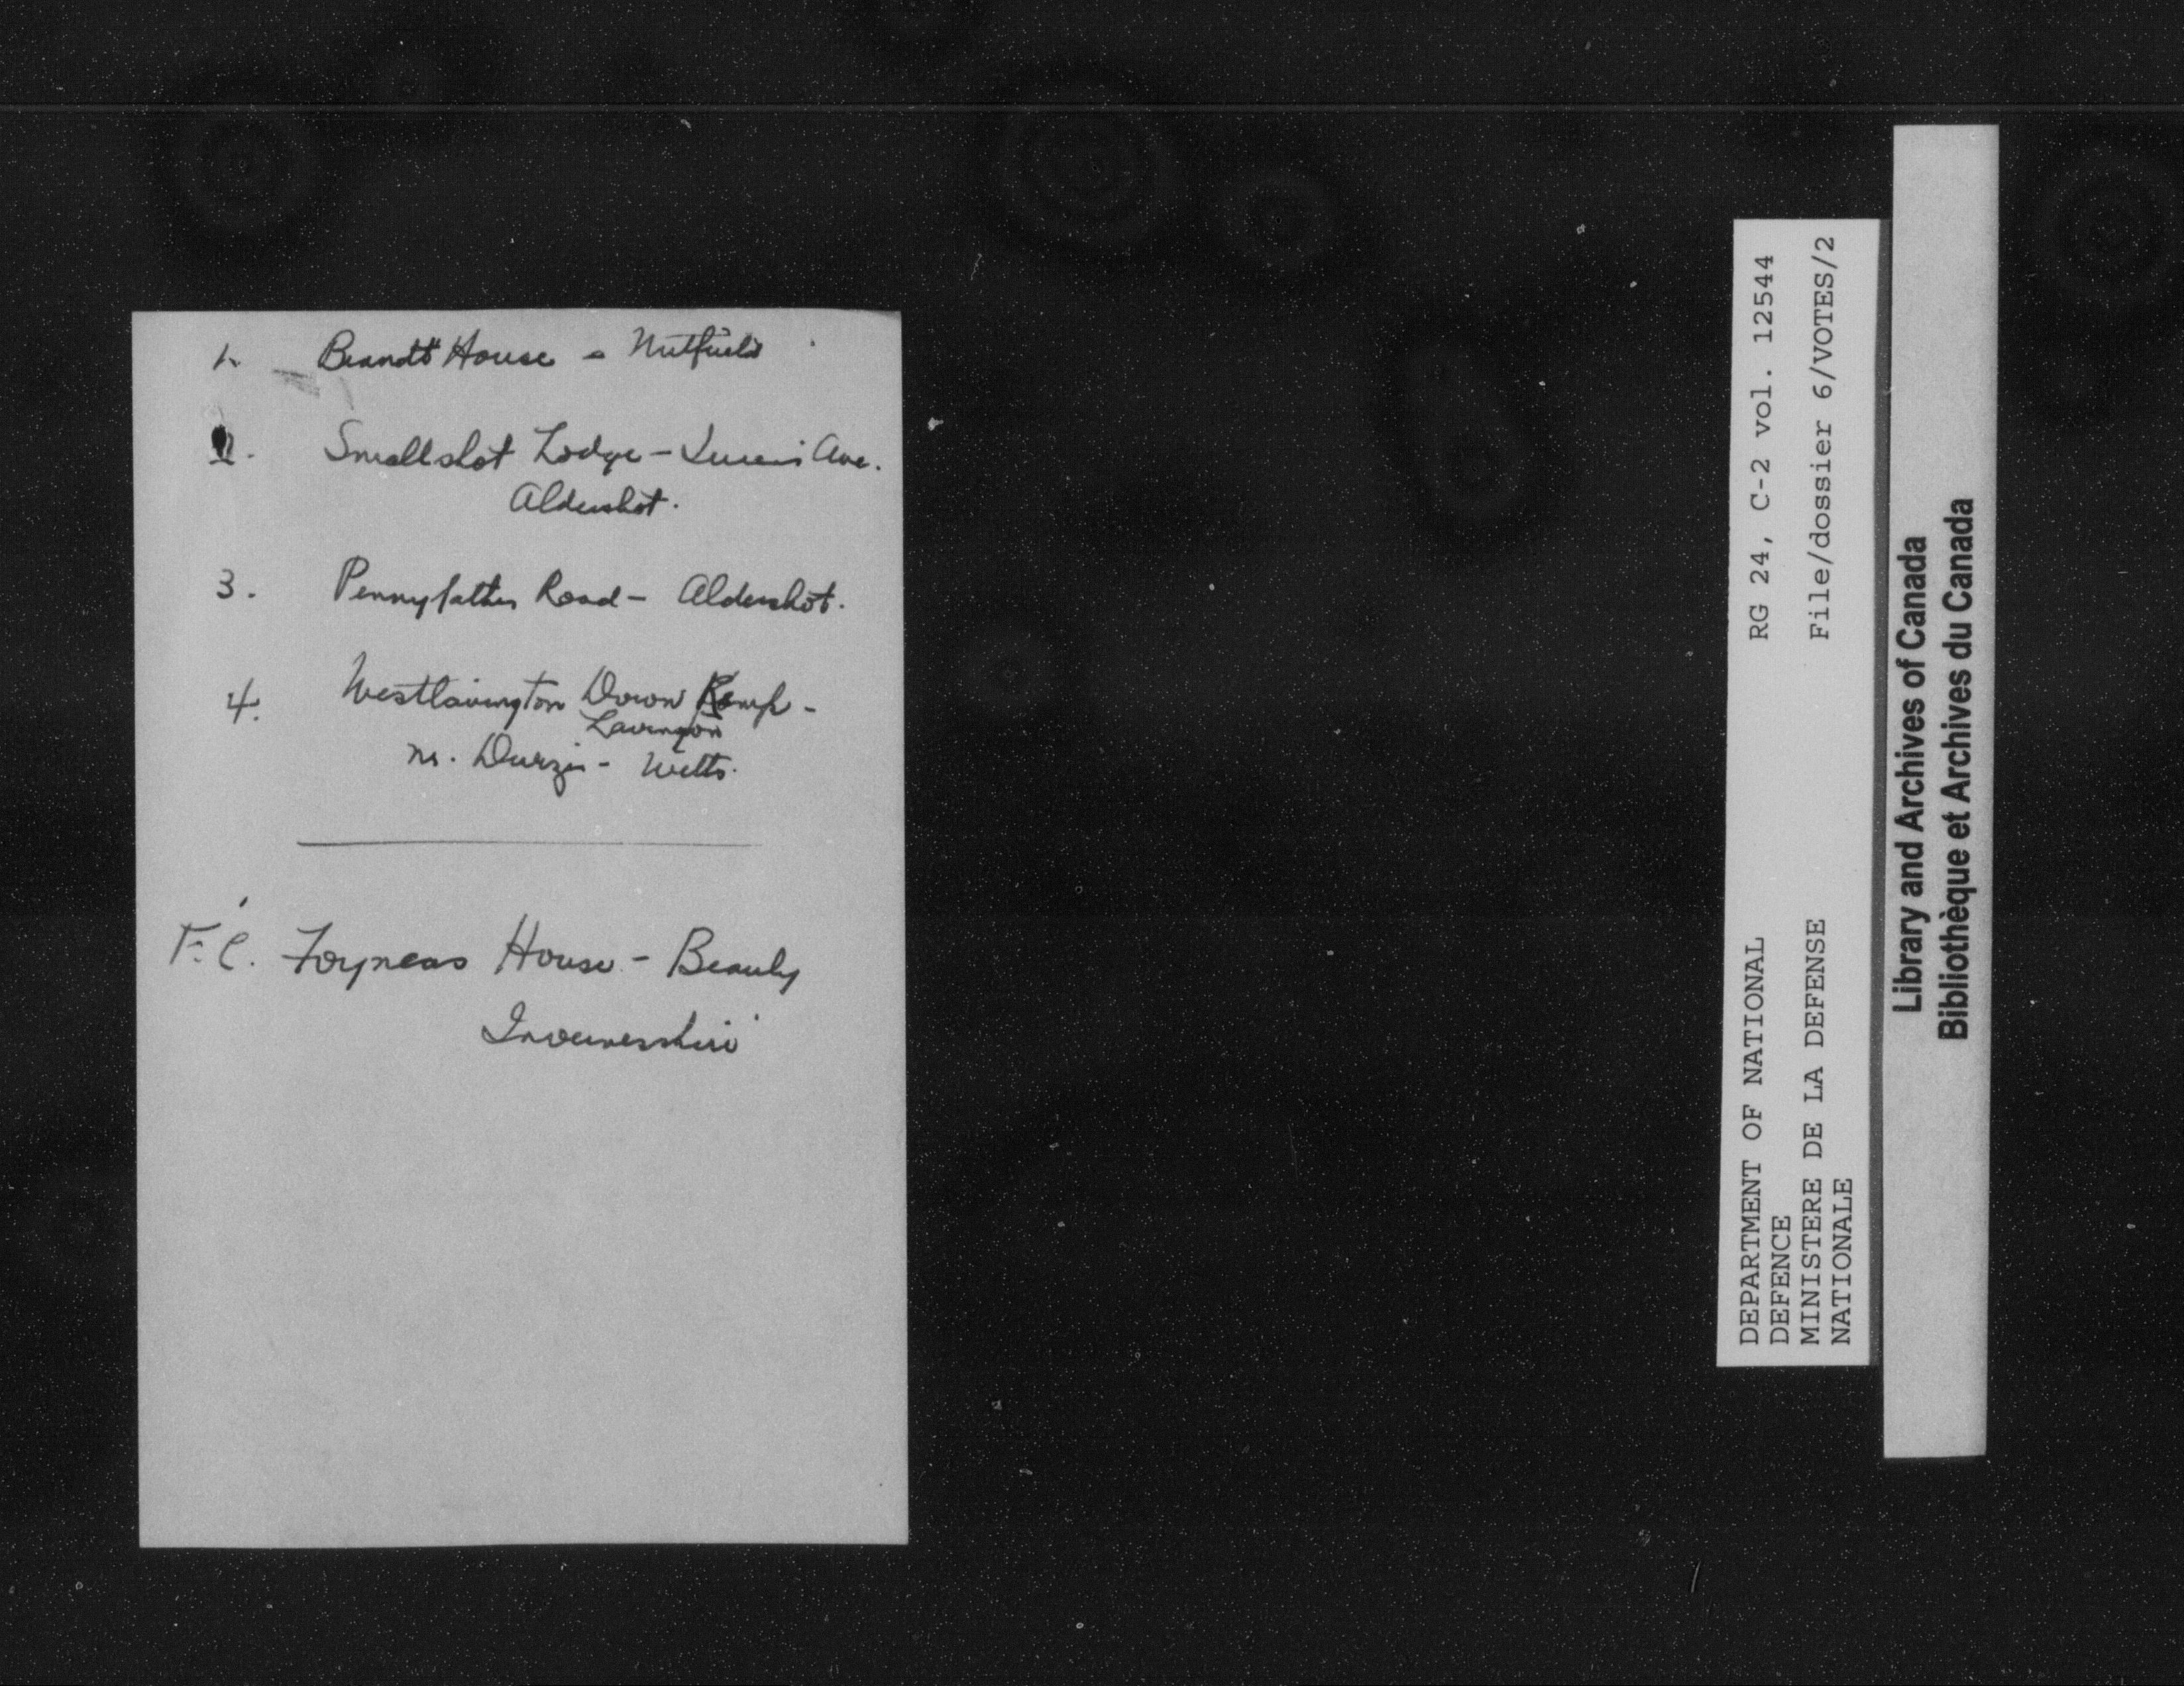 1. Brandt House - Nutfield
2. Smallshot Lodge - Queens Ave.
Aldershot.
3. Pennyfather Road - Aldershot.
4. Westlavington Down Kemp -
Lavington
nr. - Wilts.
F.C. Foyneas House - Beauly
Invernesshire
RG 24, C-2 vol. 12544
File/dossier 6/VOTES/2
DEPARTMENT OF NATIONAL
DEFENCE
MINISTERE DE LA DEFENSE
NATIONALE
Library and Archives of Canada
Bibliothèque et Archives du Canada